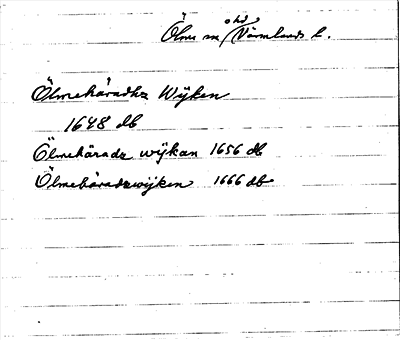 Ölme sn o hd Värmlands l.
Ölmehäradhz Wijken
1648 db
Ölmehäradz wijkan 1656 db
Ölmehäradzwijken 1666 db